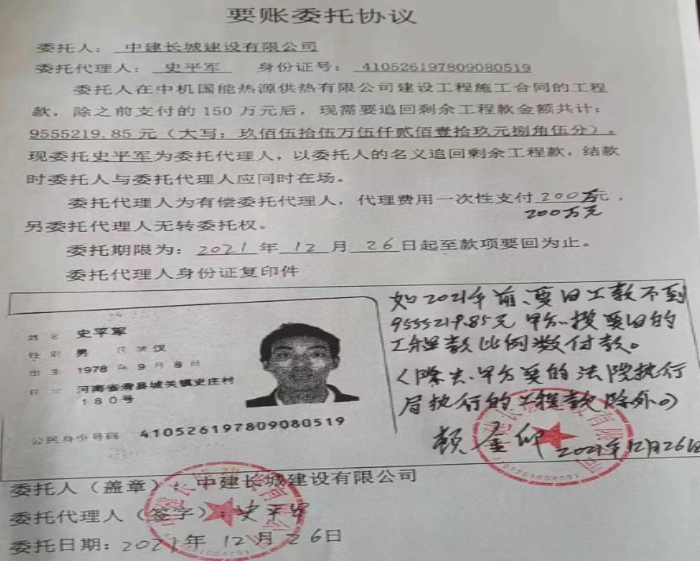 要账委托协议
委托人：中建长城建设有限公司
委托代理人：史平军 身份证号：410526197809080519
委托人在中机国能热源供热有限公司建设工程施工合同的工程
款，除之前支付的150万元后，现需要追回剩余工程款金额共计：
9555219.85元（大写：玖佰伍拾伍万伍仟贰佰壹拾玖元捌角伍分）。
现委托史平军为委托代理人，以委托人的名义追回剩余工程款，结款
时委托人与委托代理人应同时在场。
委托代理人为有偿委托代理人，代理费用一次性支付200万元，
200万元
另委托代理人无转委托权。
委托期限为：2021年12月26日起至款项要回为止。
委托代理人身份证复印件
姓名 史平军
性别 男 民族 汉
出生 1978年9月8日
住址 河南省滑县城关镇史庄村
180号
公民身份号码 410526197809080519
如2021年前，要回工款不到
9555219.85元 甲方按要回的
工程款比例数付款。
（除去甲方要的法院执行
局执行的工程款除外。）
顾金仰 2021年12月26日
委托人（盖章）：中建长城建设有限公司
委托代理人（签字）：史平军
委托日期：2021年12月26日